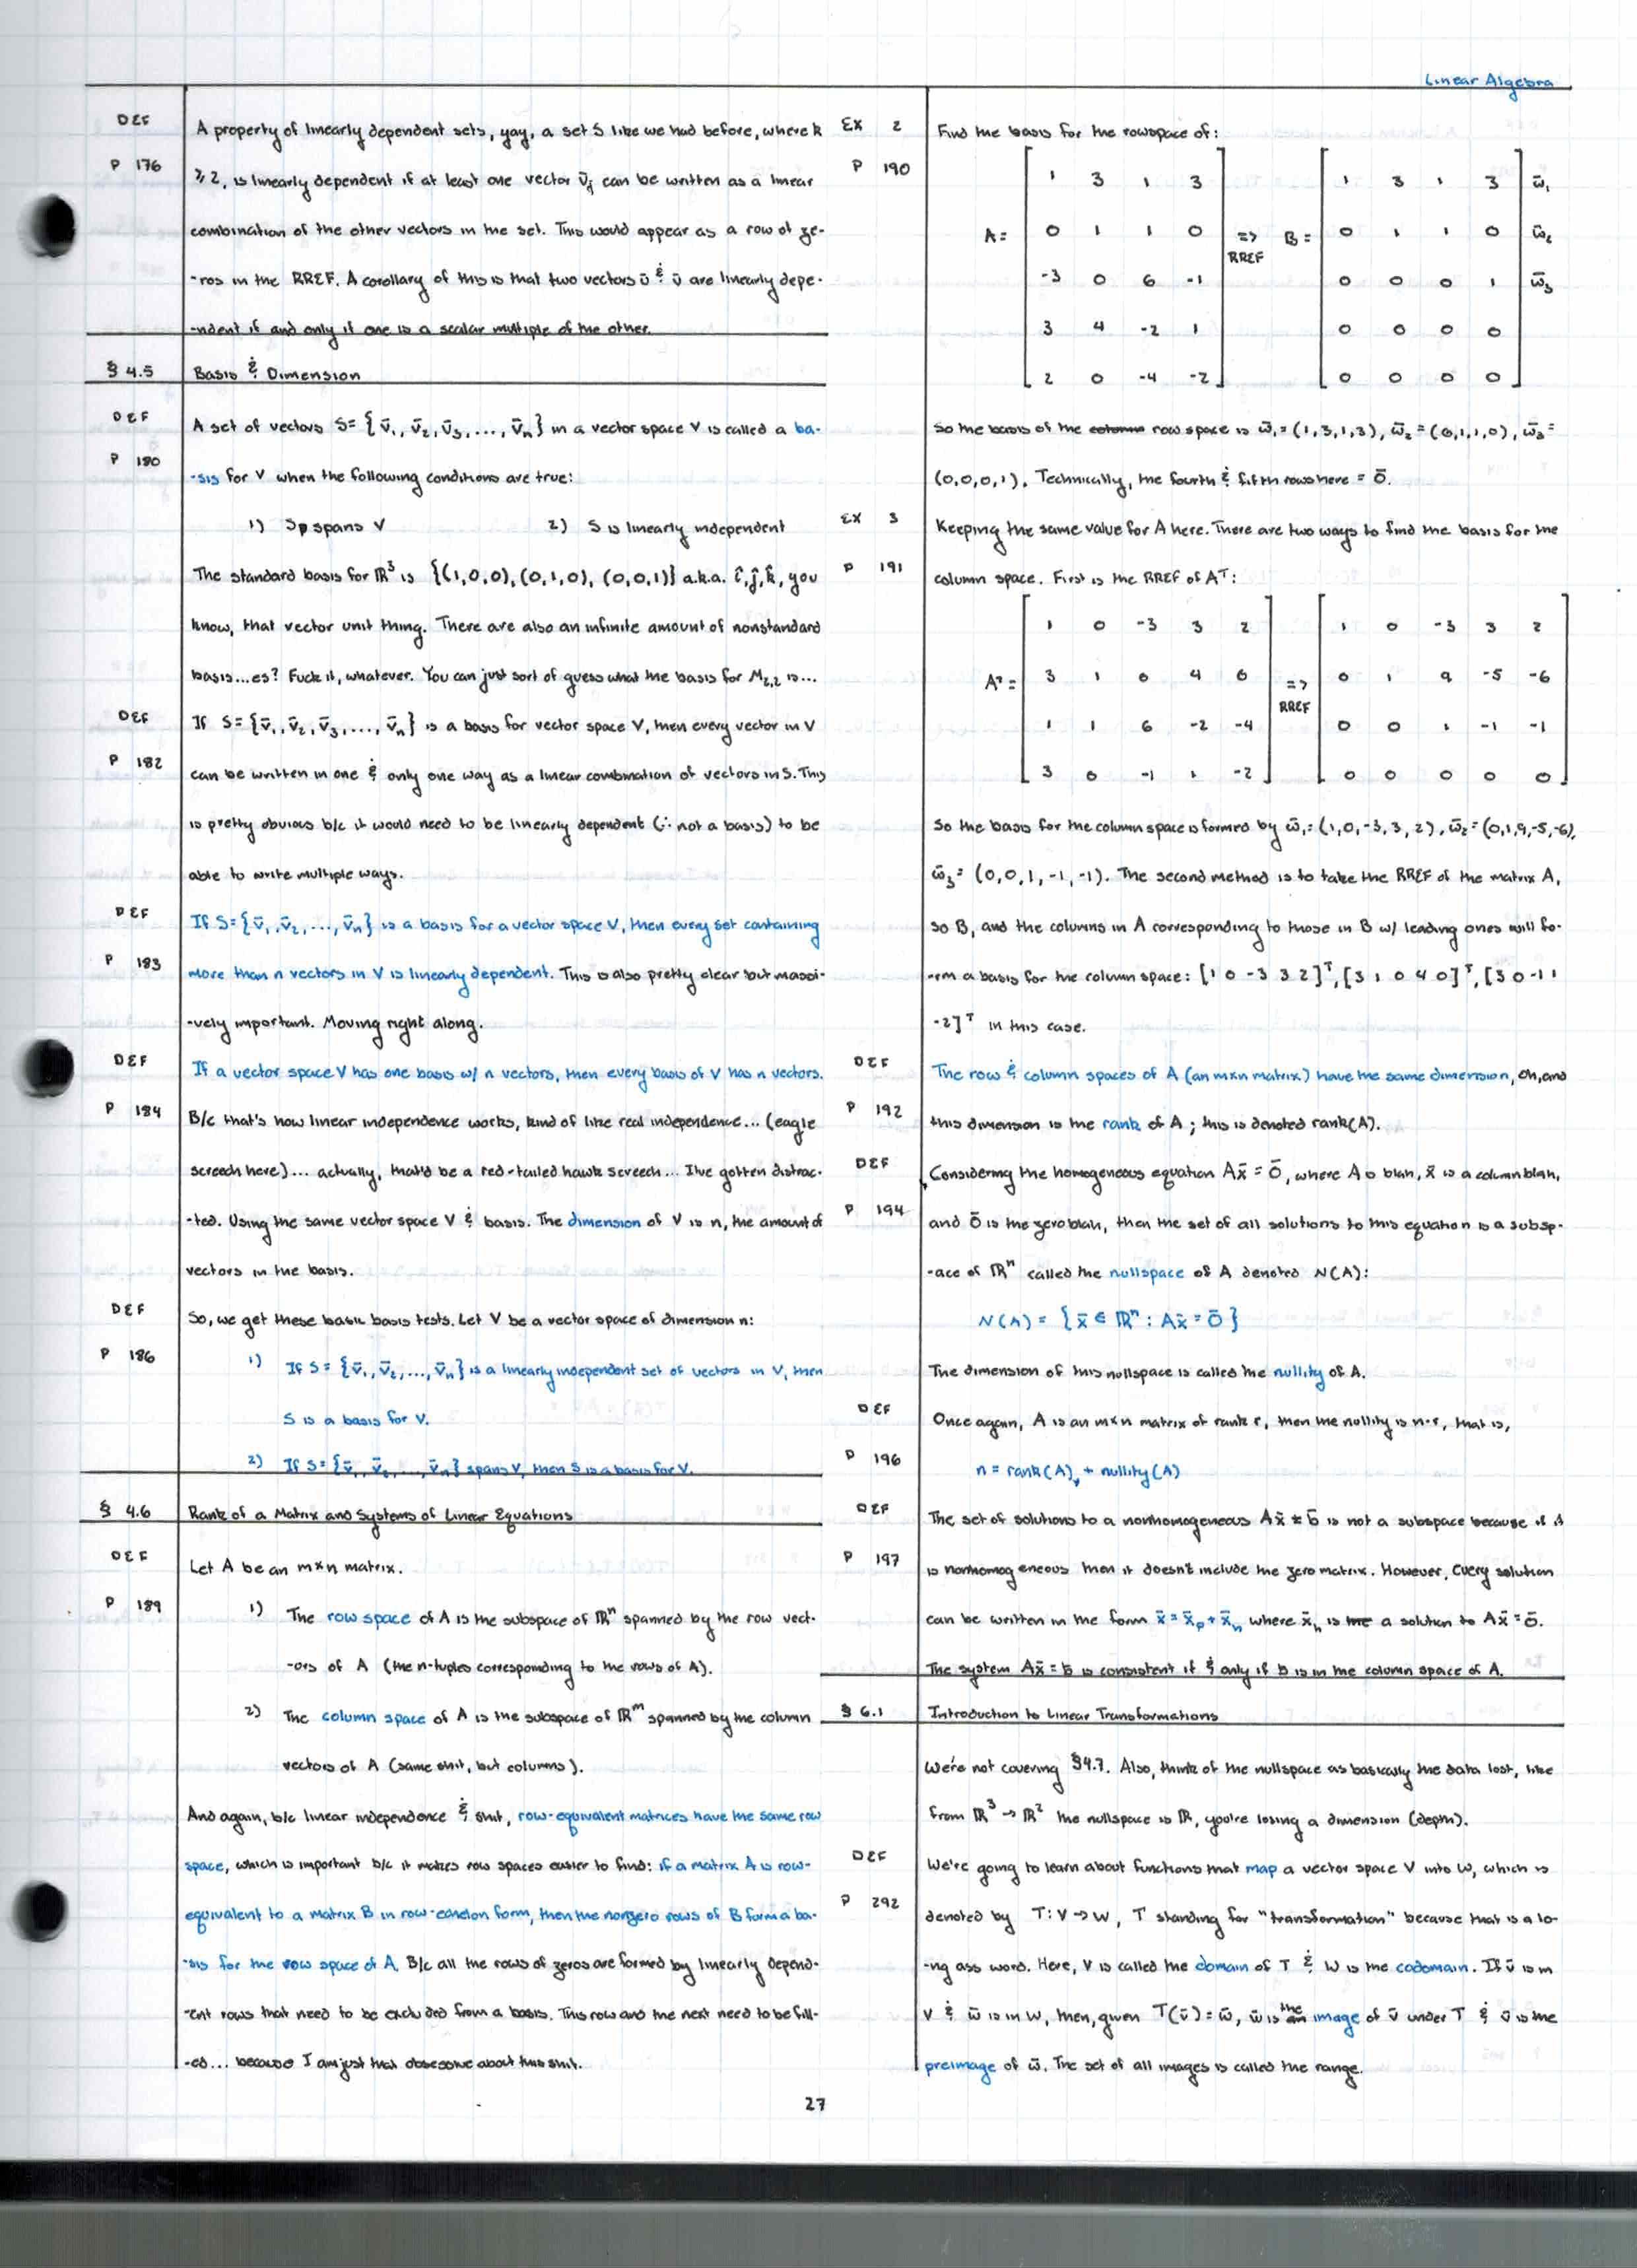 Linear Algebra
DEF
P 176
A property of linearly dependent sets, yay, a set S like we had before, where k
≥ 2, is linearly dependent if at least one vector v̄j can be written as a linear
combination of the other vectors in the set. This would appear as a row of ze-
-ros in the RREF. A corollary of this is that two vectors ū & v̄ are linearly depe-
-ndent if and only if one is a scalar multiple of the other.
§ 4.5 Basis & Dimension
DEF
P 180
A set of vectors S= {v̄1, v̄2, v̄3, ..., v̄n} in a vector space V is called a ba-
-sis for V when the following conditions are true:
1) S spans V 2) S is linearly independent
The standard basis for ℝ³ is {(1,0,0), (0,1,0), (0,0,1)} a.k.a. î,ĵ,k̂, you
know, that vector unit thing. There are also an infinite amount of nonstandard
basis...es? Fuck it, whatever. You can just sort of guess what the basis for M2,2 is...
DEF
P 182
If S={v̄1, v̄2, v̄3, ..., v̄n} is a basis for vector space V, then every vector in V
can be written in one & only one way as a linear combination of vectors in S. This
is pretty obvious b/c it would need to be linearly dependent (∴ not a basis) to be
able to write multiple ways.
DEF
P 183
If S={v̄1, v̄2, ..., v̄n} is a basis for a vector space V, then every set containing
more than n vectors in V is linearly dependent. This is also pretty clear but massi-
-vely important. Moving right along.
DEF
P 184
If a vector space V has one basis w/ n vectors, then every basis of V has n vectors.
B/c that's how linear independence works, kind of like real independence... (eagle
screech here)... actually, that'd be a red-tailed hawk screech... I've gotten distrac-
-ted. Using the same vector space V & basis. The dimension of V is n, the amount of
vectors in the basis.
DEF
P 186
So, we get these basic basis tests. Let V be a vector space of dimension n:
1) If S = {v̄1, v̄2, ..., v̄n} is a linearly independent set of vectors in V, then
S is a basis for V.
2) If S= {v̄1, v̄2, ..., v̄n} spans V, then S is a basis for V.
§ 4.6 Rank of a Matrix and Systems of Linear Equations
DEF
P 189
Let A be an m×n matrix.
1) The row space of A is the subspace of ℝⁿ spanned by the row vect-
-ors of A (the n-tuples corresponding to the rows of A).
2) The column space of A is the subspace of ℝᵐ spanned by the column
vectors of A (same shit, but columns).
And again, b/c linear independence & shit, row-equivalent matrices have the same row
space, which is important b/c it makes row spaces easier to find: if a matrix A is row-
equivalent to a matrix B in row-echelon form, then the nonzero rows of B form a ba-
-sis for the row space of A. B/c all the rows of zeros are formed by linearly depend-
-ent rows that need to be excluded from a basis. This row and the next need to be fill-
-ed... because I am just that obsessive about this shit.
EX 2
P 190
Find the basis for the rowspace of:
1 3 1 3 1 3 1 3 w̄1
A= 0 1 1 0 => RREF B= 0 1 1 0 w̄2
-3 0 6 -1 0 0 0 1 w̄3
3 4 -2 1 0 0 0 0
2 0 -4 -2 0 0 0 0
So the basis of the column row space is w̄1=(1,3,1,3), w̄2=(0,1,1,0), w̄3=
(0,0,0,1). Technically, the fourth & fifth rows here = ō.
EX 3
P 191
Keeping the same value for A here. There are two ways to find the basis for the
column space. First is the RREF of Aᵀ:
1 0 -3 3 2 1 0 -3 3 2
Aᵀ= 3 1 0 4 0 => RREF 0 1 9 -5 -6
1 1 6 -2 -4 0 0 1 -1 -1
3 0 -1 1 -2 0 0 0 0 0
So the basis for the column space is formed by w̄1=(1,0,-3,3,2), w̄2=(0,1,9,-5,-6),
w̄3= (0,0,1,-1,-1). The second method is to take the RREF of the matrix A,
so B, and the columns in A corresponding to those in B w/ leading ones will fo-
-rm a basis for the column space: [1 0 -3 3 2]ᵀ, [3 1 0 4 0]ᵀ, [3 0 -1 1
-2]ᵀ in this case.
DEF
P 192
The row & column spaces of A (an m×n matrix) have the same dimension, oh, and
this dimension is the rank of A; this is denoted rank(A).
DEF
P 194
Considering the homogeneous equation Ax̄ = ō, where A is blah, x̄ is a column blah,
and ō is the zero blah, then the set of all solutions to this equation is a subsp-
-ace of ℝⁿ called the nullspace of A denoted N(A):
N(A) = {x̄ ∈ ℝⁿ: Ax̄ = ō}
The dimension of this nullspace is called the nullity of A.
DEF
P 196
Once again, A is an m×n matrix of rank r, then the nullity is n-r, that is,
n = rank(A) + nullity(A)
DEF
P 197
The set of solutions to a nonhomogeneous Ax̄ = b̄ is not a subspace because if it
is nonhomogeneous then it doesn't include the zero matrix. However, every solution
can be written in the form x̄ = x̄p + x̄h where x̄h is the a solution to Ax̄ = ō.
The system Ax̄ = b̄ is consistent if & only if b is in the column space of A.
§ 6.1 Introduction to Linear Transformations
We're not covering §4.7. Also, think of the nullspace as basically the data lost, like
from ℝ³ → ℝ² the nullspace is ℝ, you're losing a dimension (depth).
DEF
P 292
We're going to learn about functions that map a vector space V into W, which is
denoted by T: V → W, T standing for "transformation" because that is a lo-
-ng ass word. Here, V is called the domain of T & W is the codomain. If v̄ is in
V & w̄ is in W, then, given T(v̄) = w̄, w̄ is the image of v̄ under T & v̄ is the
preimage of w̄. The set of all images is called the range.
27